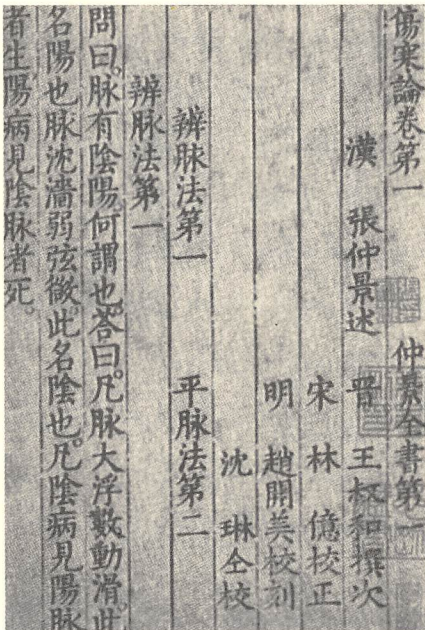 傷寒論卷第一 仲景全書第一
漢 張仲景述 晋 王叔和撰次
宋 林 億校正
明 趙開美校刻
沈 琳仝校
辨脉法第一 平脉法第二
辨脉法第一
問曰。脉有陰陽。何謂也。答曰。凡脉大浮數動滑。此
名陽也。脉沈濇弱弦微。此名陰也。凡陰病見陽脉
者生。陽病見陰脉者死。